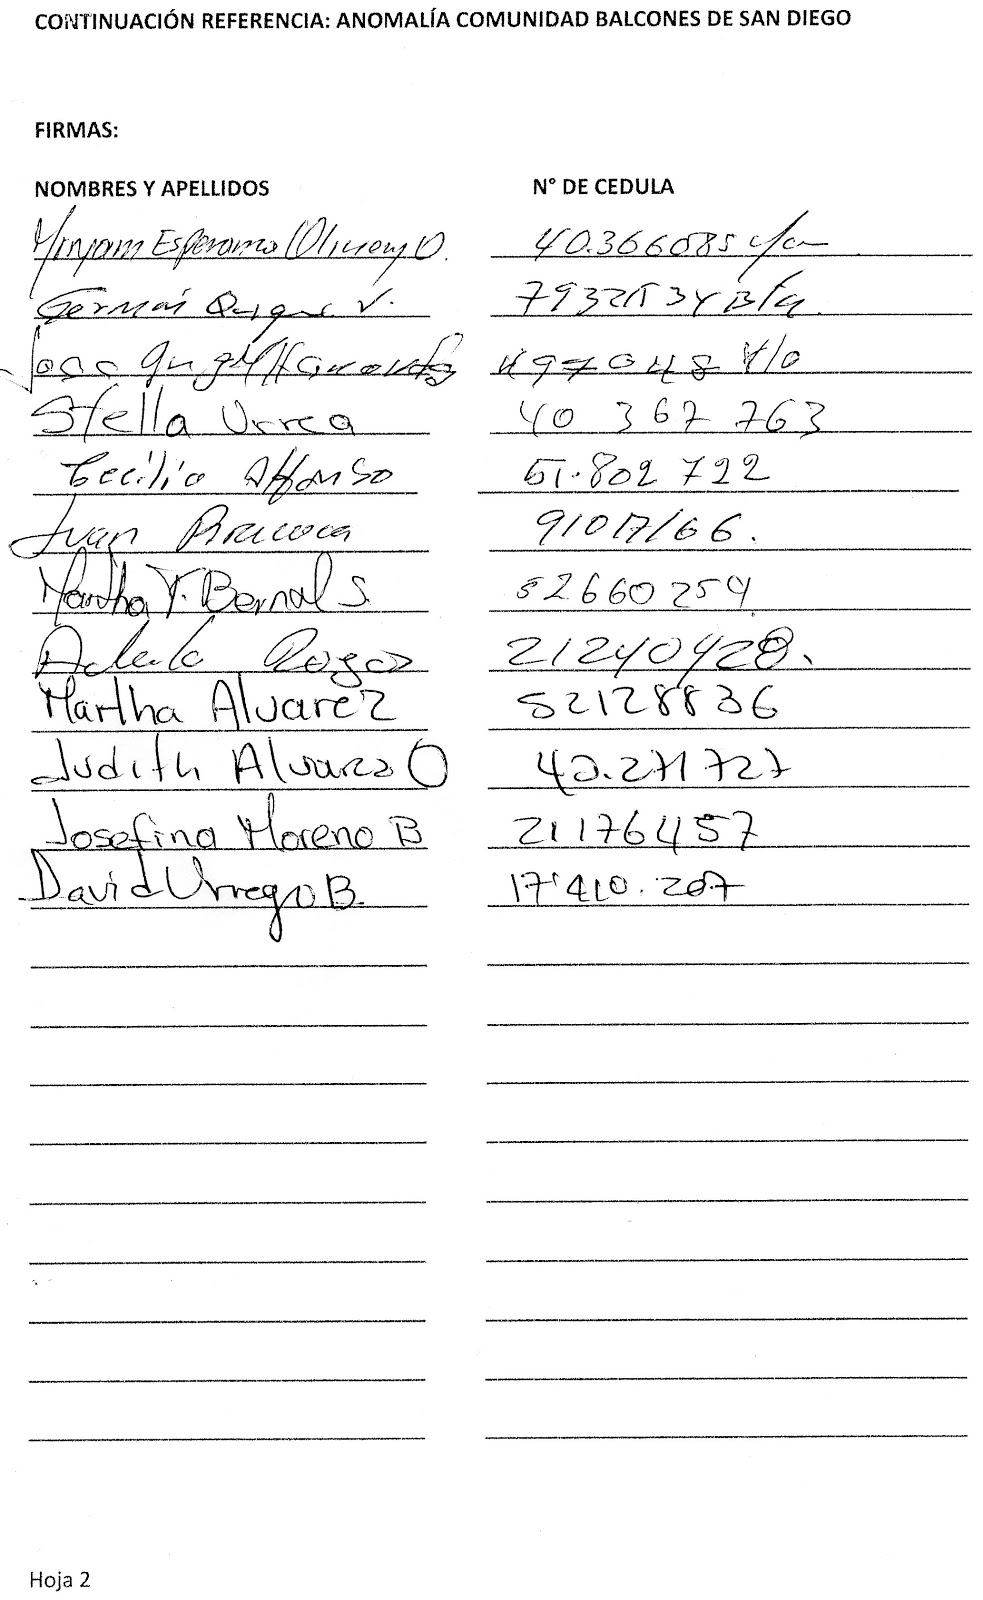 CONTINUACIÓN REFERENCIA: ANOMALÍA COMUNIDAD BALCONES DE SAN DIEGO
FIRMAS:
NOMBRES Y APELLIDOS N° DE CEDULA
Myryam Esperanza O. 40.366085
Germán V.
Jose 497048 V/o
Stella Urrea 40 367 763
Cecilia Alfonso 51.802 722
Ivan
Martha Y. Bernal S. 52660254
Rojas 21240428.
Martha Alvarez 52128836
Judith Alvarez O 40.271727
Josefina Moreno B 21176457
David Urrego B. 17'410.207
Hoja 2